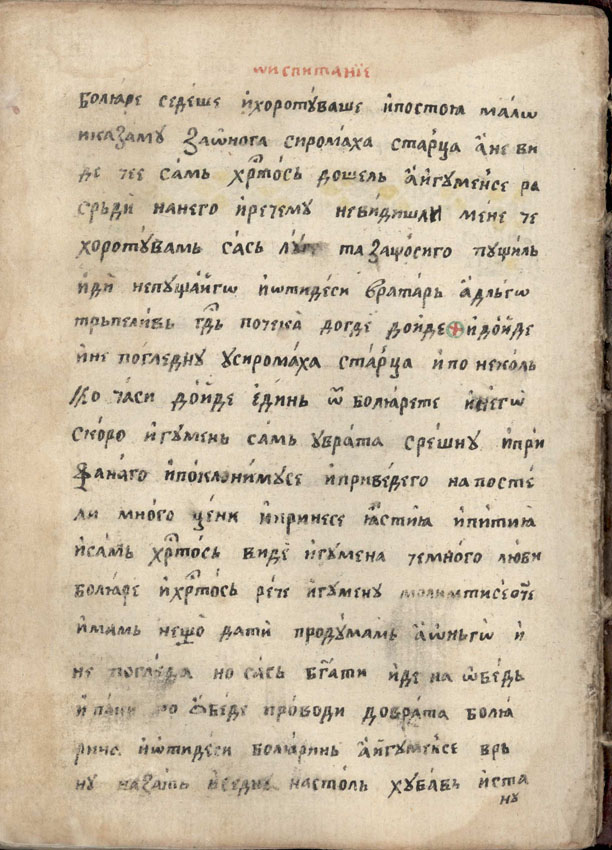 ѡиспитанїе
болꙗре седеше и҆хоротꙋваше и҆постоꙗ малѡ
иказамꙋ заѡ҆нога сиромаха старца а҆не ви
де тее са́мь хрⷭ҇то́сь дошель а҆и҆гꙋме́нсе ра
срьди́ нанего и҆речемꙋ невидишли мене че
хоротꙋ́вамь са́сь та защо́сиго пꙋщиль
и҆ди непꙋща́и҆гѡ и҆ѡ҆тидеси вратарь а҆дльгѡ
трьпели́вь гдⷭ҇ь почека догде до́иде и҆до́и҆де
и҆не погледнꙋ ꙋсиромаха ста́рца и҆по неколь
ко часи до́и҆де е҆ди́нь ѿ болꙗрете и҆него̀
ско́ро и҆гꙋмень са́мь ꙋврата срешнꙋ и҆при
фана́го и҆покло́нимꙋсе и҆приведего напосте
ли много цени и҆принесе ꙗ҆стиꙗ и҆питиꙗ
и҆са́мь хрⷭ҇то́сь виде и҆гꙋмена чемно́го люби
болꙗре и҆хрⷭ҇то́сь ре́че и҆гꙋменꙋ молимтисеѡ҆́че
и҆мамь нещо дати продꙋ́мамь а҆ѡ҆ньгѡ и҆
не погледа но са́сь бг҃ати и҆де на ѡ҆бедь
и҆ па́ки по ѡ҆беде прово́ди довра́та болꙗ
рина и҆ѡ҆тидеси болꙗринь а҆и҆гꙋме́нсе врь
нꙋ наза́ть и҆седна насто́ль хꙋ́бавь и҆ста
нꙋ